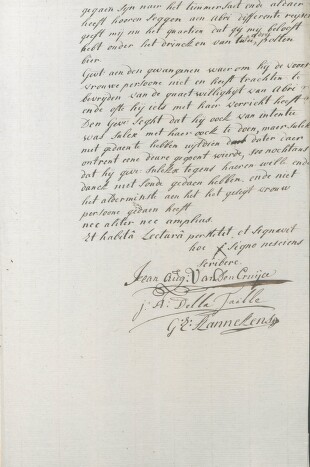 gegaen syn naer het timmerhuet ende aldaer
heeft hooren seggen aen abri differente reysen
geeft my nu het quartien dat gy my belooft
hebt onder het drincken van potten
bier.
Gevt aenden gevangenen waerom hy de voors.
vrouwe persoone niet en heeft trachten te
bevryden van de quaetwillighyt van abre
ende ofte hy iets met haer verricht heeft
Den Gev. seght dat hy oock van intentie
was sulex met haer oock te doen, maer sulex
niet gedaen te hebben uytdien dat dater daer
ontrent eene deure geopent wierde, soo nochtans
dat hy gev. sulex tegens haeren wille ende
danck niet soude gedaen hebben, ende niet
het alderminste aen het geseyt vrouw
persoone gedaen heeft
nec aliter nec amplius.
Et habitâ Lecturâ perstitit, et signavit
hoc X signo nesciens
scribere.
Jean Aug. Van Den Cruyce
j. A. Della Faille
Stanneken